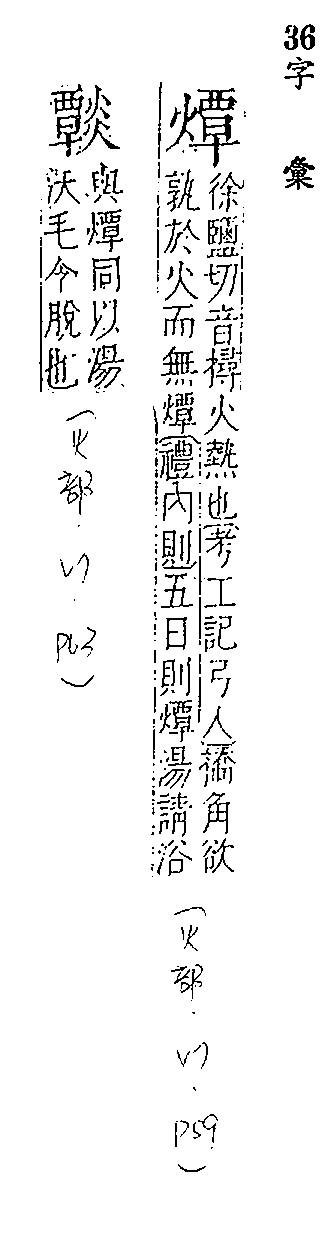 36 字 彙
燂
徐鹽切音撏火熱也考工記弓人撟角欲
孰於火而無燂禮內則五日則燂湯請浴
(火部. . P59)
與燂同以湯
沃毛今脫也
(火部. . P63)